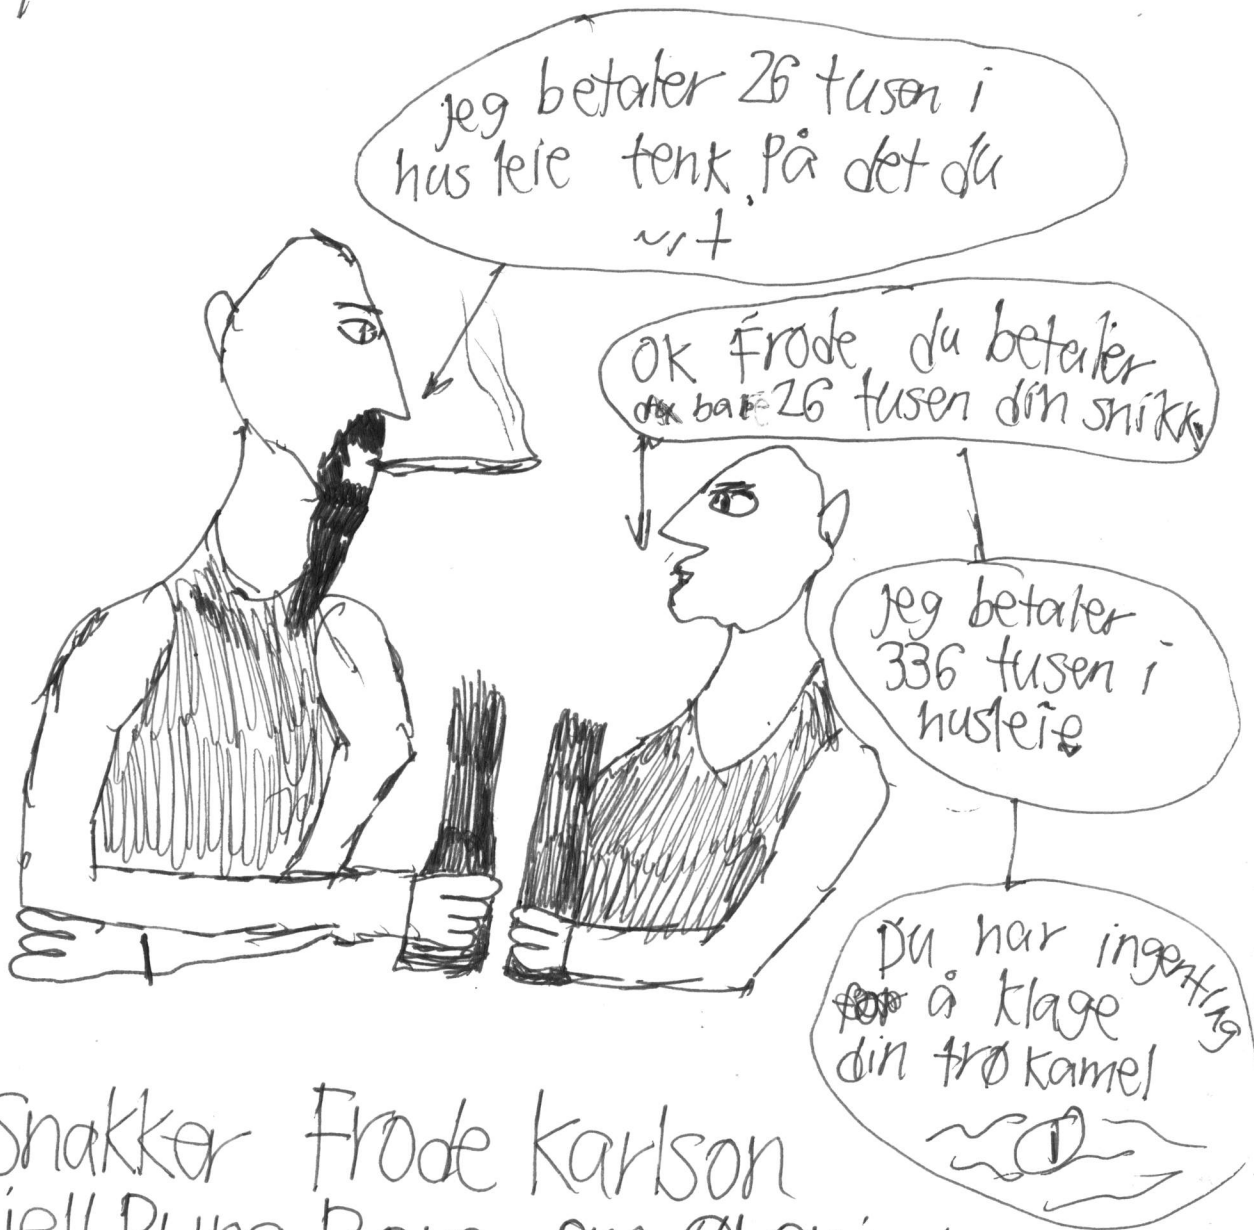 jeg betaler 26 tusen i
husleie tenk på det du
OK Frode du betaler
bare 26 tusen din snikk
jeg betaler
336 tusen i
husleie
Du har ingenting
å klage
din trø kamel
Snakker Frode Karlson
Rune